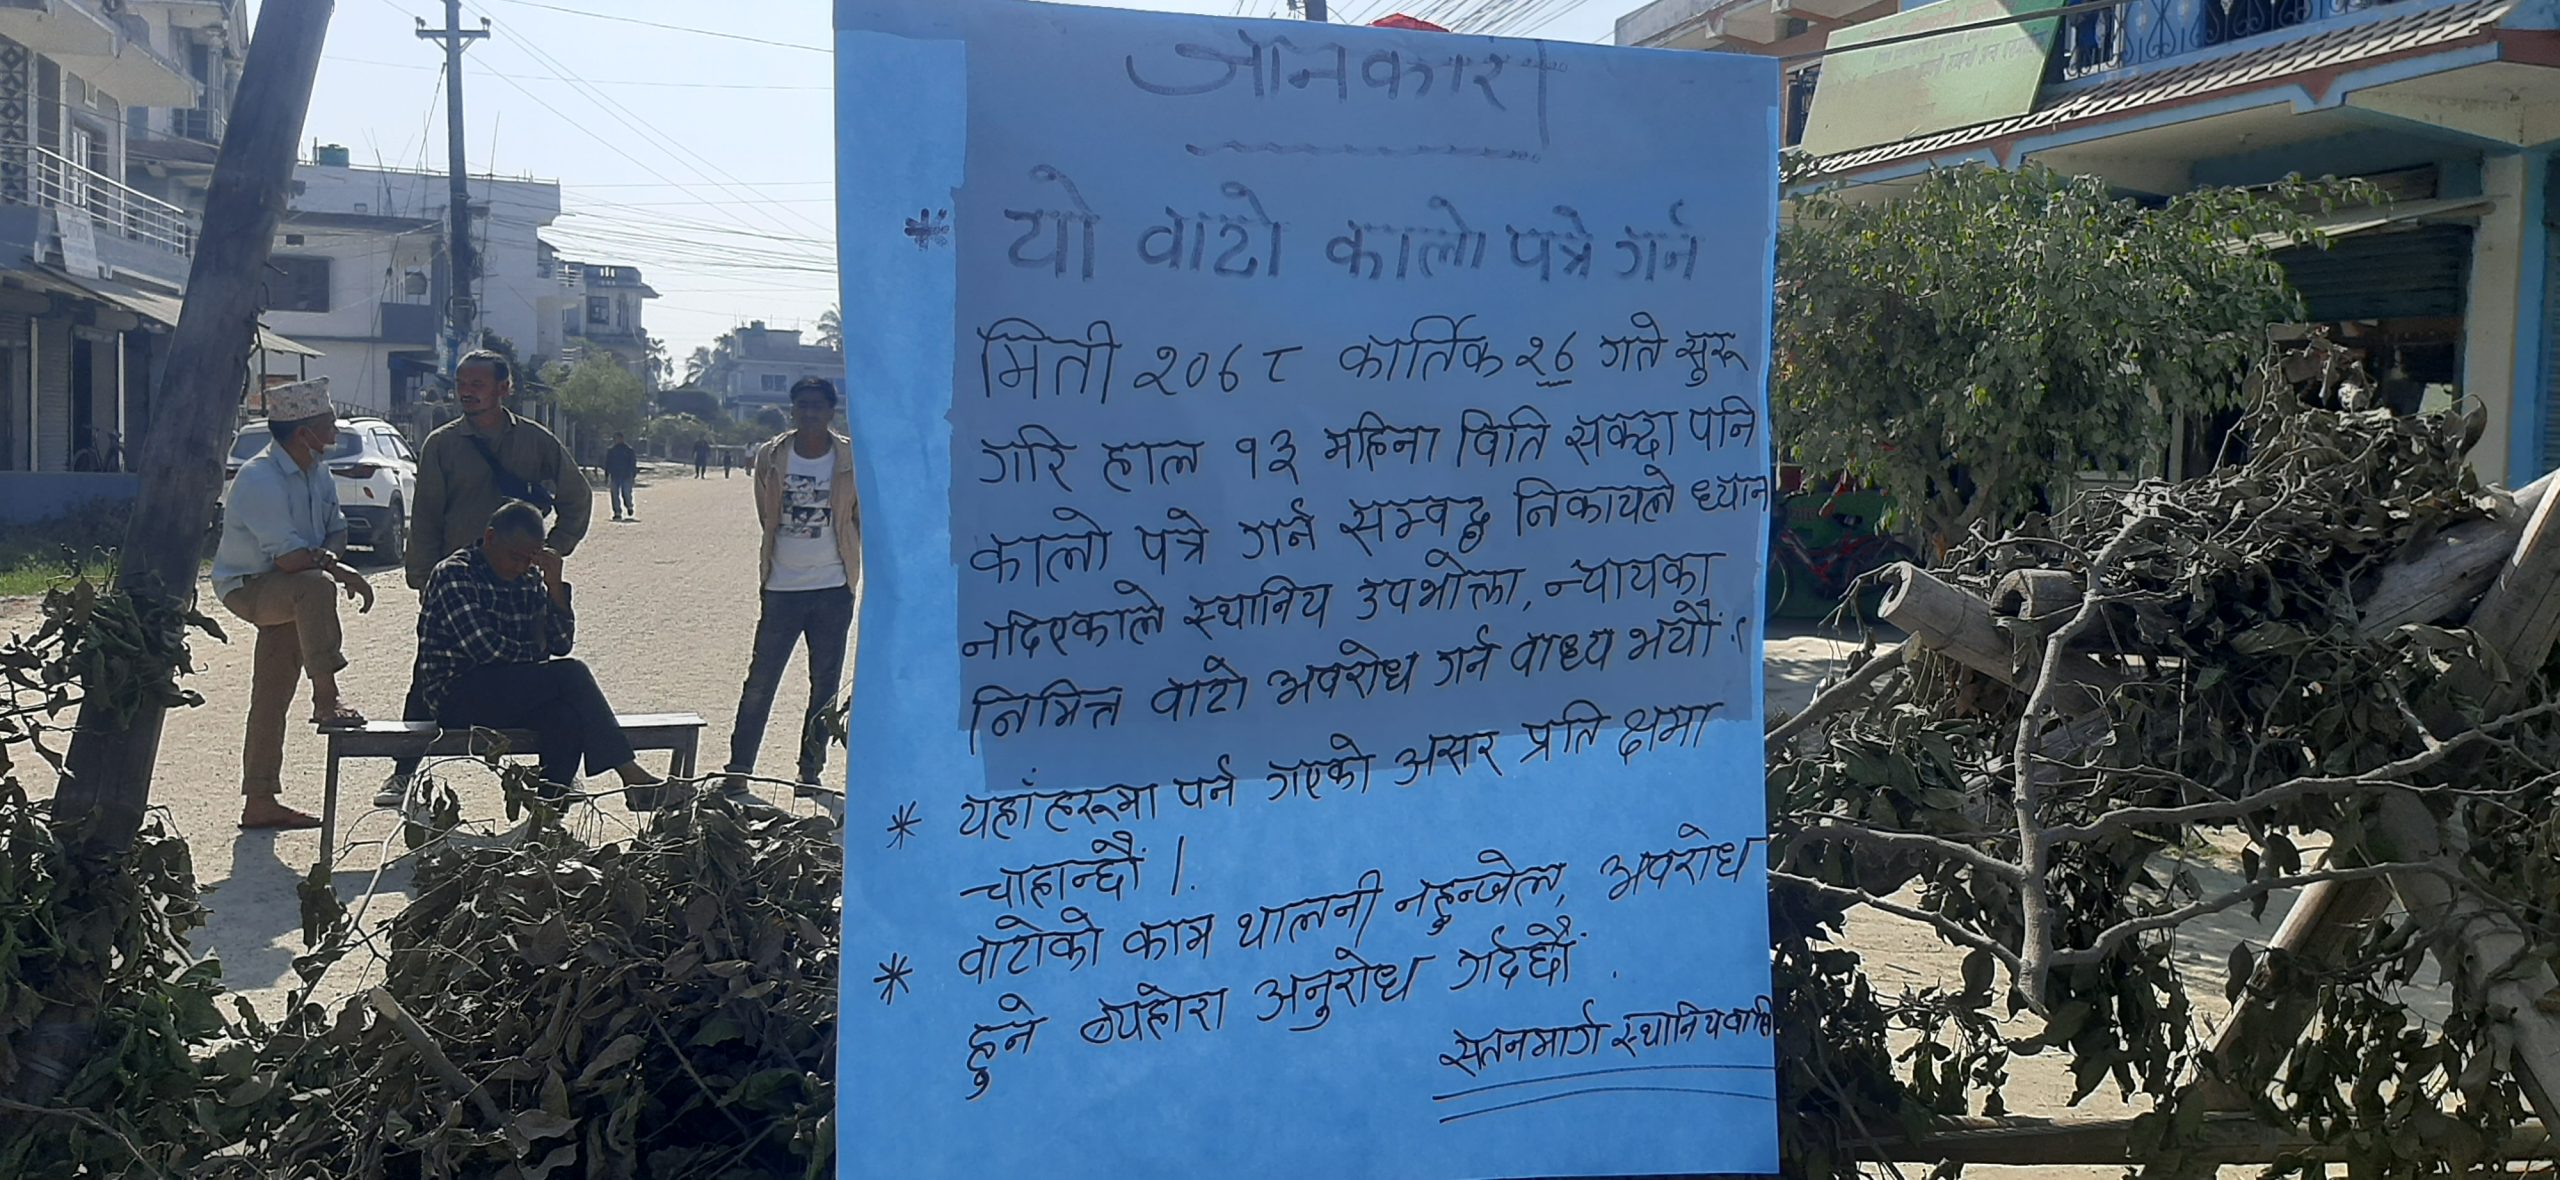 जानकारी
* यो वाटो कालो पत्रे गर्न
मिती २०७८ कार्तिक २६ गते सुरू
गरि हाल १३ महिना विति सक्दा पनि
कालो पत्रे गर्न सम्वद्ध निकायले ध्यान
नदिएकाले स्थानिय उपभोक्ता, न्यायका
निमित्त वाटो अवरोध गर्न वाध्य भयौं ।
* यहाँहरूमा पर्न गएको असर प्रति क्षमा
चाहान्छौं ।.
* वाटोको काम थालनी नहुन्जेल, अवरोध
हुने व्यहोरा अनुरोध गर्दछौं .
सतनमार्ग स्थानियवासि